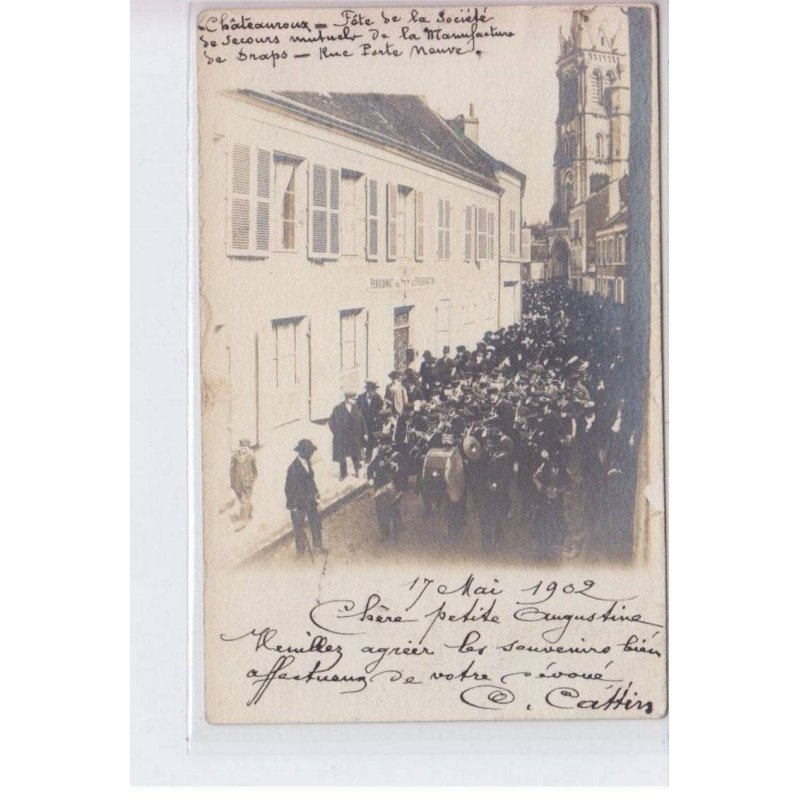 Châteauroux — Fête de la Société
de secours mutuels de la Manufacture
de Draps — Rue Porte Neuve.
PENSIONNAT
17 Mai 1902
Chère petite Augustine
Veuillez agréer les souvenirs bien
affectueux de votre dévoué
O. Cattin